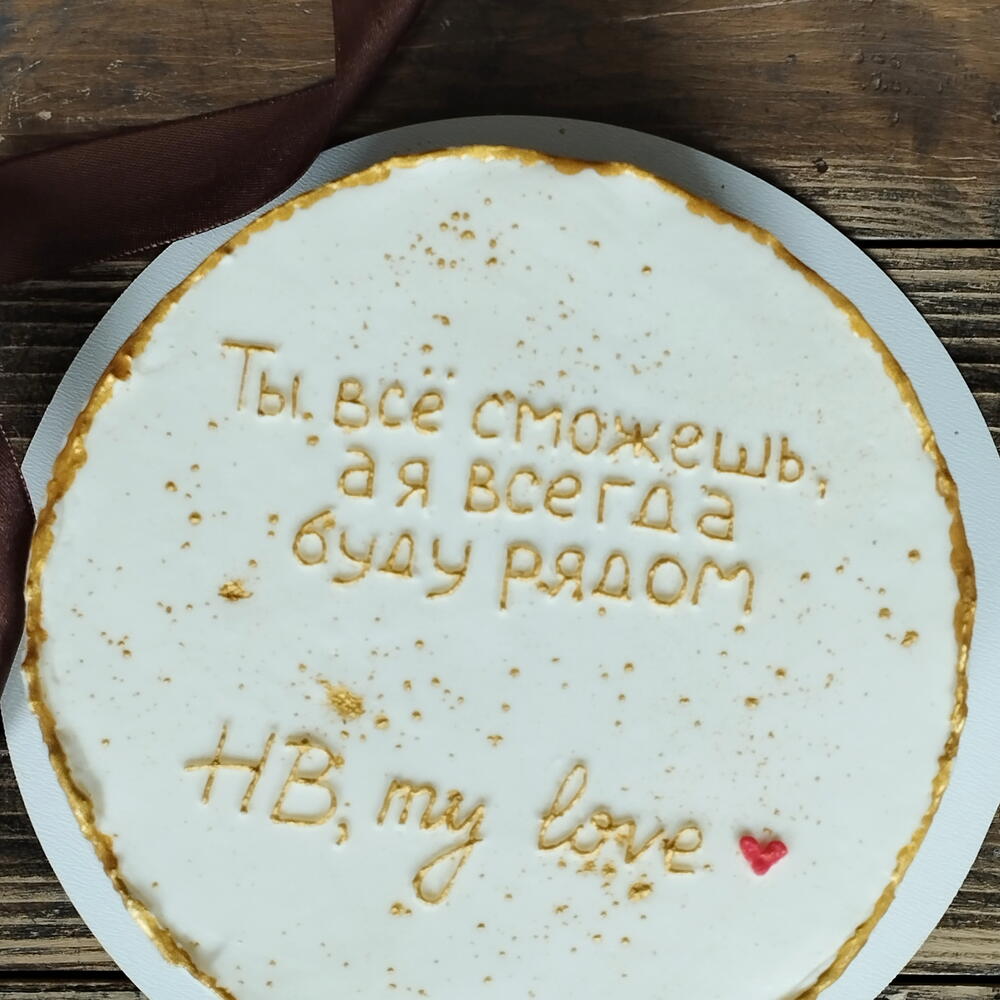 Ты всё сможешь,
а я всегда
буду рядом
HB, my love